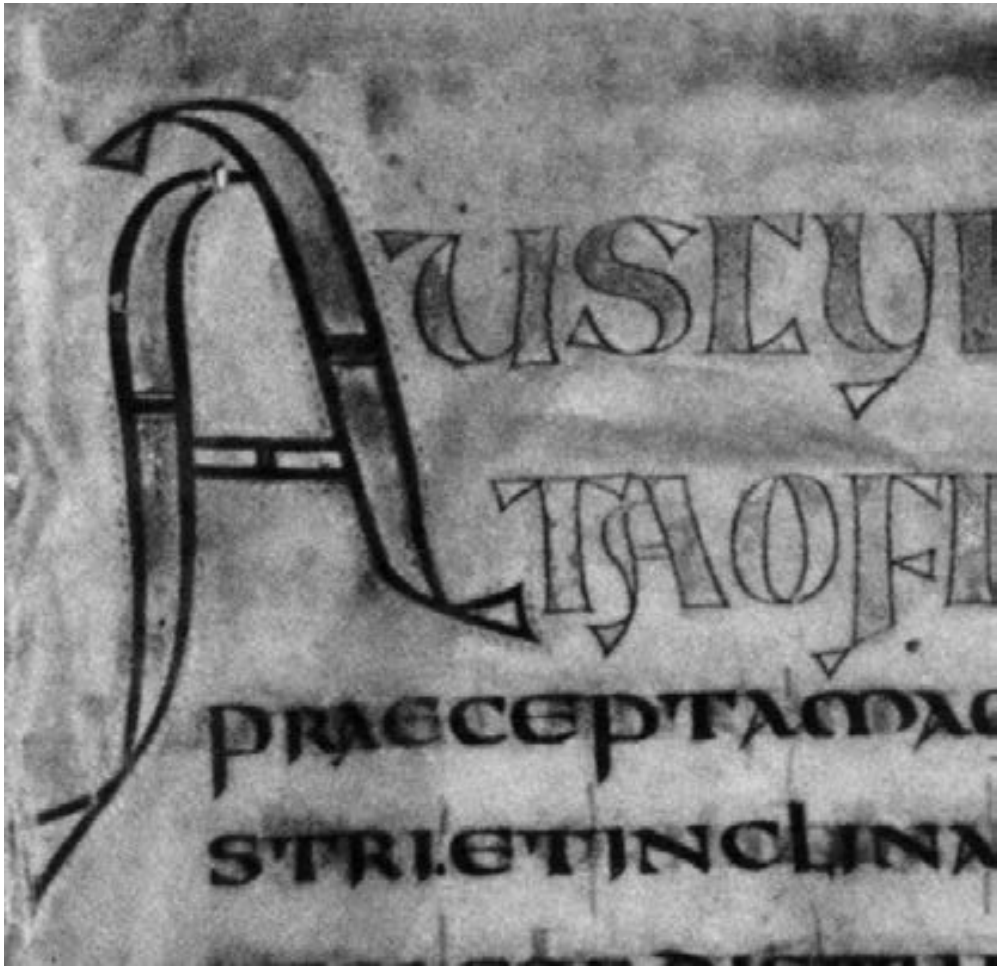 AUSCUL
TAOFI
PRAECEPTAMAG
STRI.ETINCLINA